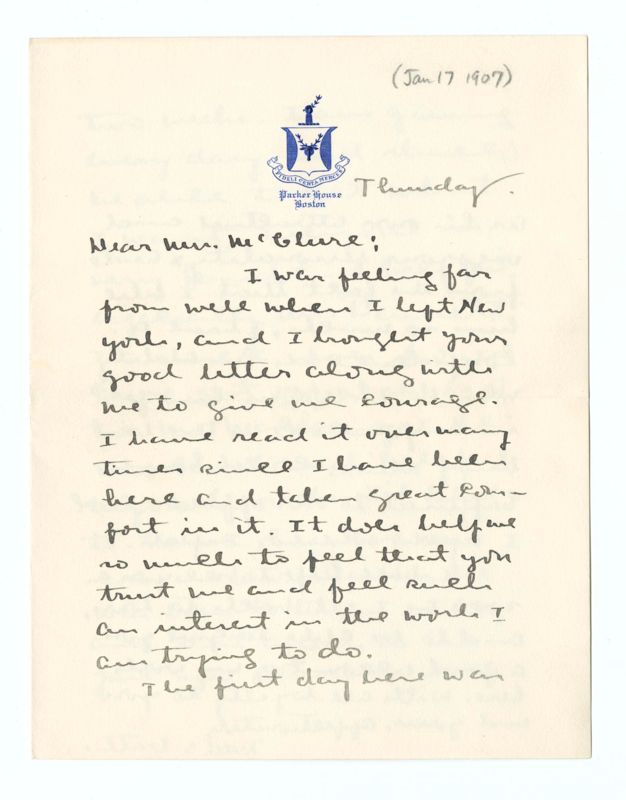 (Jan 17 1907)
Parker House
Boston
Thursday.
Dear Mrs. McClure;
I was feeling far
from well when I left New
York, and I brought your
good letter along with
me to give me courage.
I have read it over many
times since I have been
here and taken great com-
fort in it. It does help me
so much to feel that you
trust me and feel such
an interest in the work I
am trying to do.
The first day here was